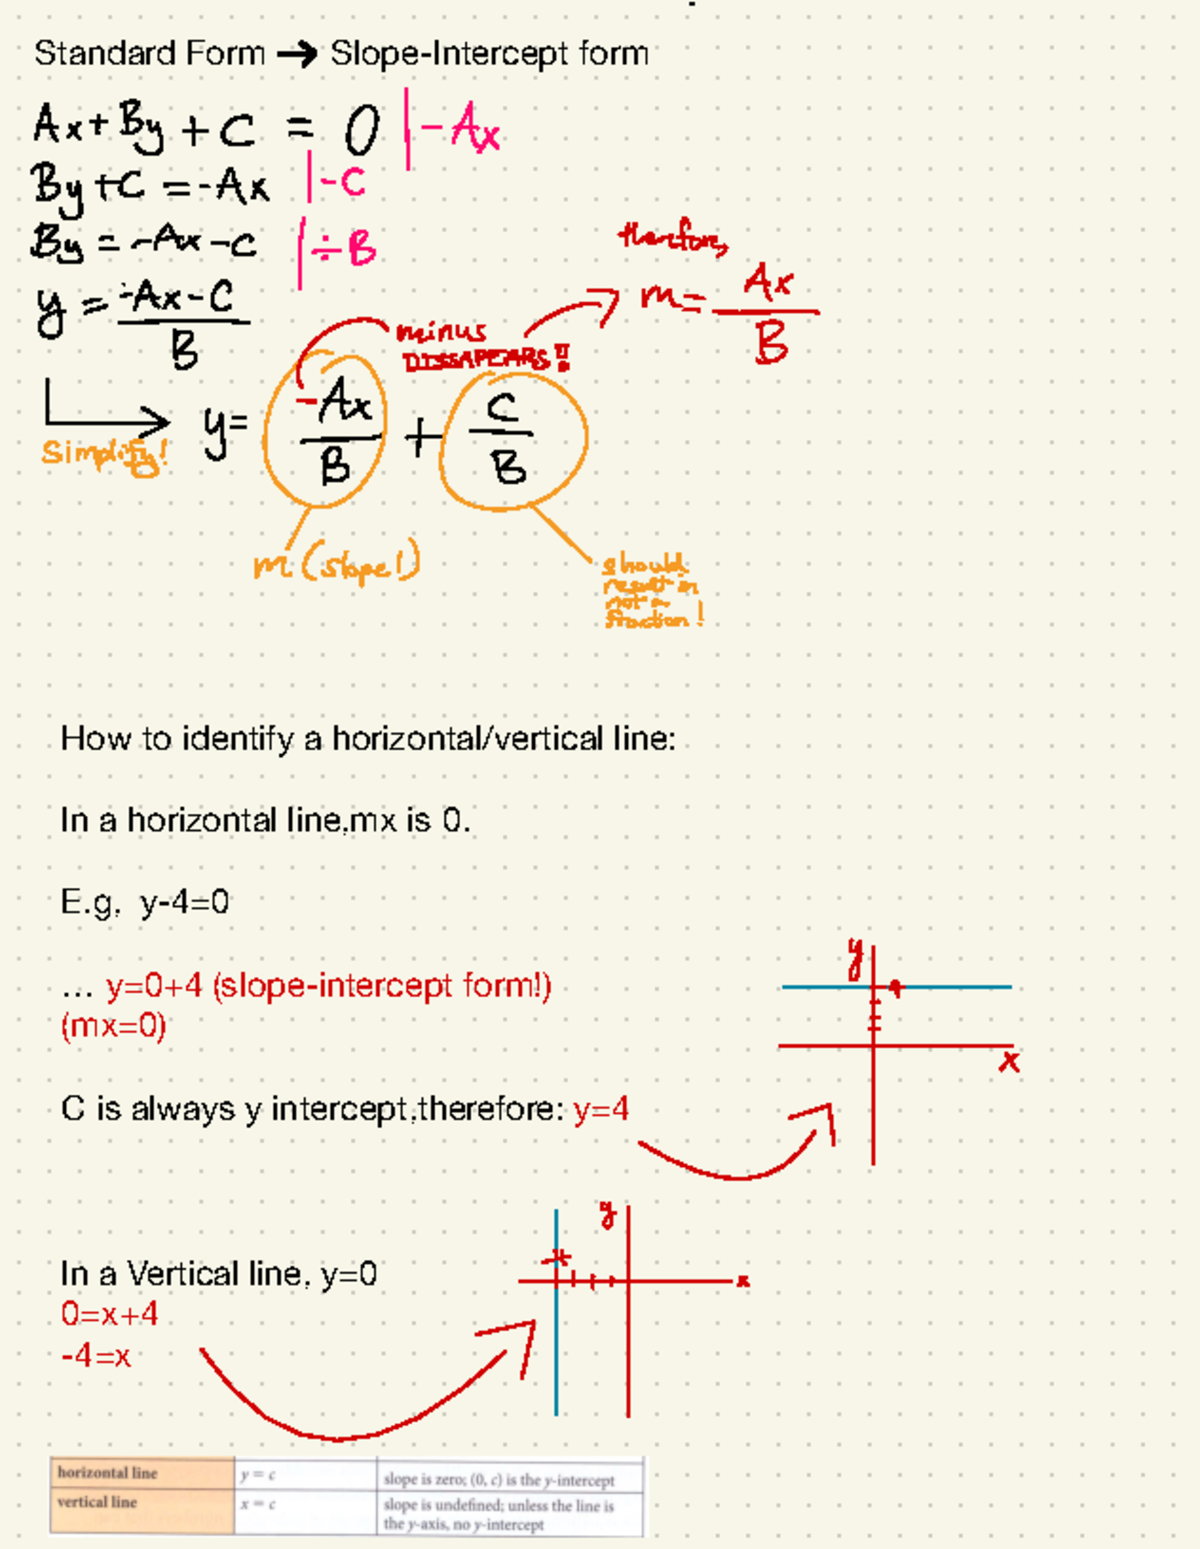 Standard Form → Slope-Intercept form
Ax+By+C = 0 |-Ax
By+C =-Ax |-C
By = -Ax-C |÷B
y = -Ax-C / B
therefore, m= Ax / B
minus
DISSAPEARS!!
Simplify! y= -Ax / B + C / B
m (slope!)
should
result in
not a
fraction!
How to identify a horizontal/vertical line:
In a horizontal line,mx is 0.
E.g, y-4=0
... y=0+4 (slope-intercept form!)
(mx=0)
y
4
x
C is always y intercept,therefore: y=4
y
x
In a Vertical line, y=0
0=x+4
-4=x
horizontal line y = c slope is zero; (0, c) is the y-intercept
vertical line x = c slope is undefined; unless the line is
the y-axis, no y-intercept